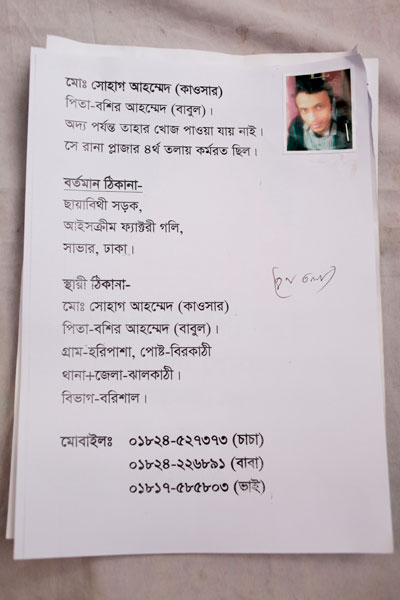 মোঃ সোহাগ আহম্মেদ (কাওসার)
পিতা-বশির আহম্মেদ (বাবুল)।
অদ্য পর্যন্ত তাহার খোজ পাওয়া যায় নাই।
সে রানা প্লাজার ৪র্থ তলায় কর্মরত ছিল।
বর্তমান ঠিকানা-
ছায়াবিথী সড়ক,
আইসক্রীম ফ্যাক্টরী গলি,
সাভার, ঢাকা।
স্থায়ী ঠিকানা-
মোঃ সোহাগ আহম্মেদ (কাওসার)
পিতা-বশির আহম্মেদ (বাবুল)।
গ্রাম-হরিপাশা, পোষ্ট-বিরকাঠী
থানা+জেলা-ঝালকাঠী।
বিভাগ-বরিশাল।
মোবাইলঃ ০১৮২৪-৫২৭৩৭৩ (চাচা)
০১৮২৪-২২৬৮৯১ (বাবা)
০১৮১৭-৫৮৫৮০৩ (ভাই)